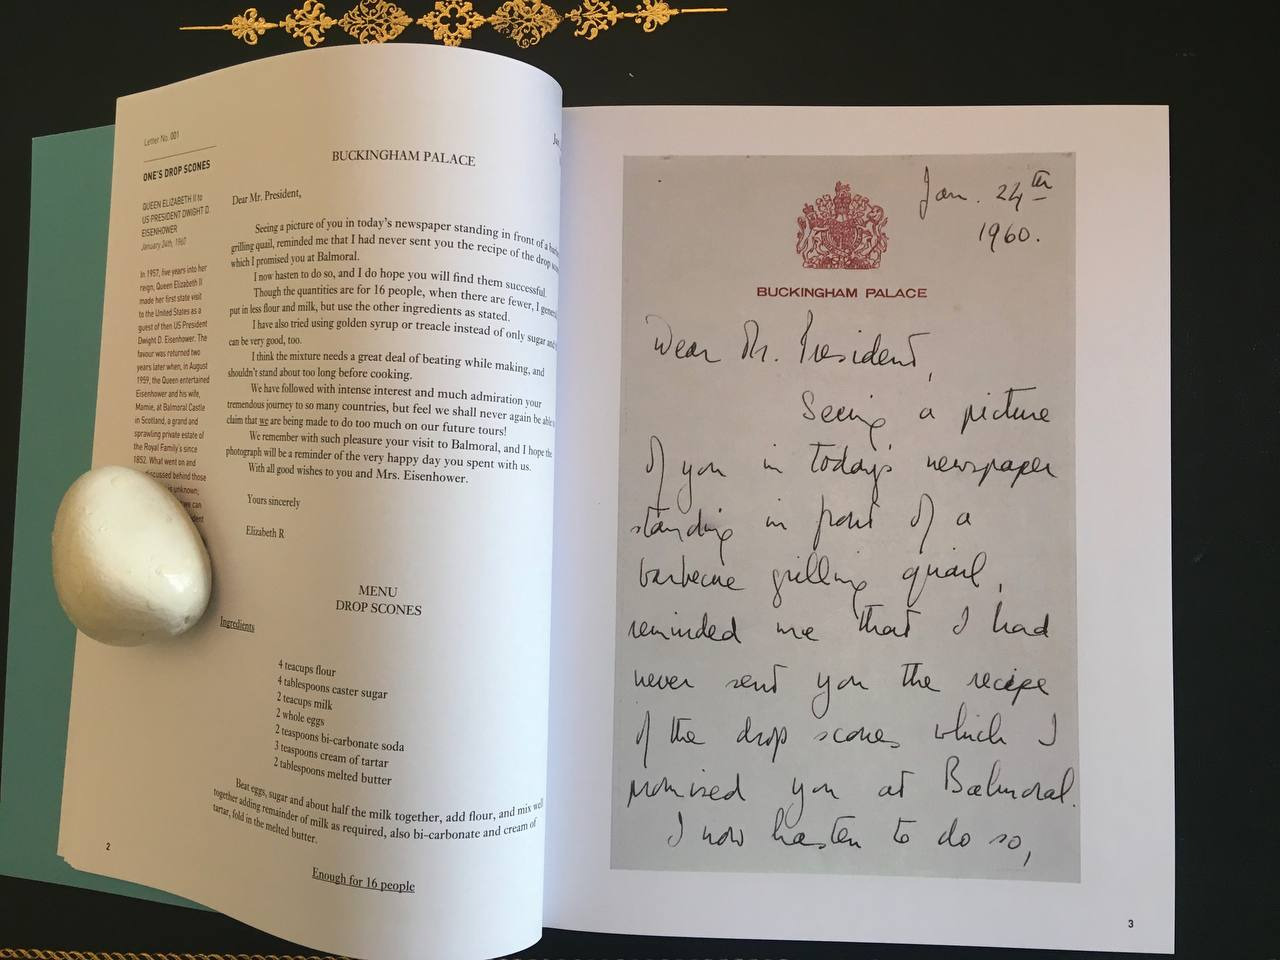 Letter No. 001
ONE'S DROP SCONES
QUEEN ELIZABETH II to
US PRESIDENT DWIGHT D.
EISENHOWER
January 24th, 1960
In 1957, five years into her
reign, Queen Elizabeth II
made her first state visit
to the United States as a
guest of then US President
Dwight D. Eisenhower. The
favour was returned two
years later when, in August
1959, the Queen entertained
Eisenhower and his wife,
Mamie, at Balmoral Castle
in Scotland, a grand and
sprawling private estate of
the Royal Family's since
1852. What went on and
discussed behind those
is unknown;
we can
BUCKINGHAM PALACE
Dear Mr. President,
Seeing a picture of you in today's newspaper standing in front of a
grilling quail, reminded me that I had never sent you the recipe of the drop
which I promised you at Balmoral.
I now hasten to do so, and I do hope you will find them successful.
Though the quantities are for 16 people, when there are fewer, I
put in less flour and milk, but use the other ingredients as stated.
I have also tried using golden syrup or treacle instead of only sugar and
can be very good, too.
I think the mixture needs a great deal of beating while making, and
shouldn't stand about too long before cooking.
We have followed with intense interest and much admiration your
tremendous journey to so many countries, but feel we shall never again be able
claim that we are being made to do too much on our future tours!
We remember with such pleasure your visit to Balmoral, and I hope the
photograph will be a reminder of the very happy day you spent with us.
With all good wishes to you and Mrs. Eisenhower.
Yours sincerely
Elizabeth R
MENU
DROP SCONES
Ingredients
4 teacups flour
4 tablespoons caster sugar
2 teacups milk
2 whole eggs
2 teaspoons bi-carbonate soda
3 teaspoons cream of tartar
2 tablespoons melted butter
Beat eggs, sugar and about half the milk together, add flour, and mix well
together adding remainder of milk as required, also bi-carbonate and cream of
tartar, fold in the melted butter.
Enough for 16 people
2
Jan. 24th
1960.
BUCKINGHAM PALACE
Dear Mr. President,
Seeing a picture
of you in today's newspaper
standing in front of a
barbecue grilling quail,
reminded me that I had
never sent you the recipe
of the drop scones which I
promised you at Balmoral.
I now hasten to do so,
3